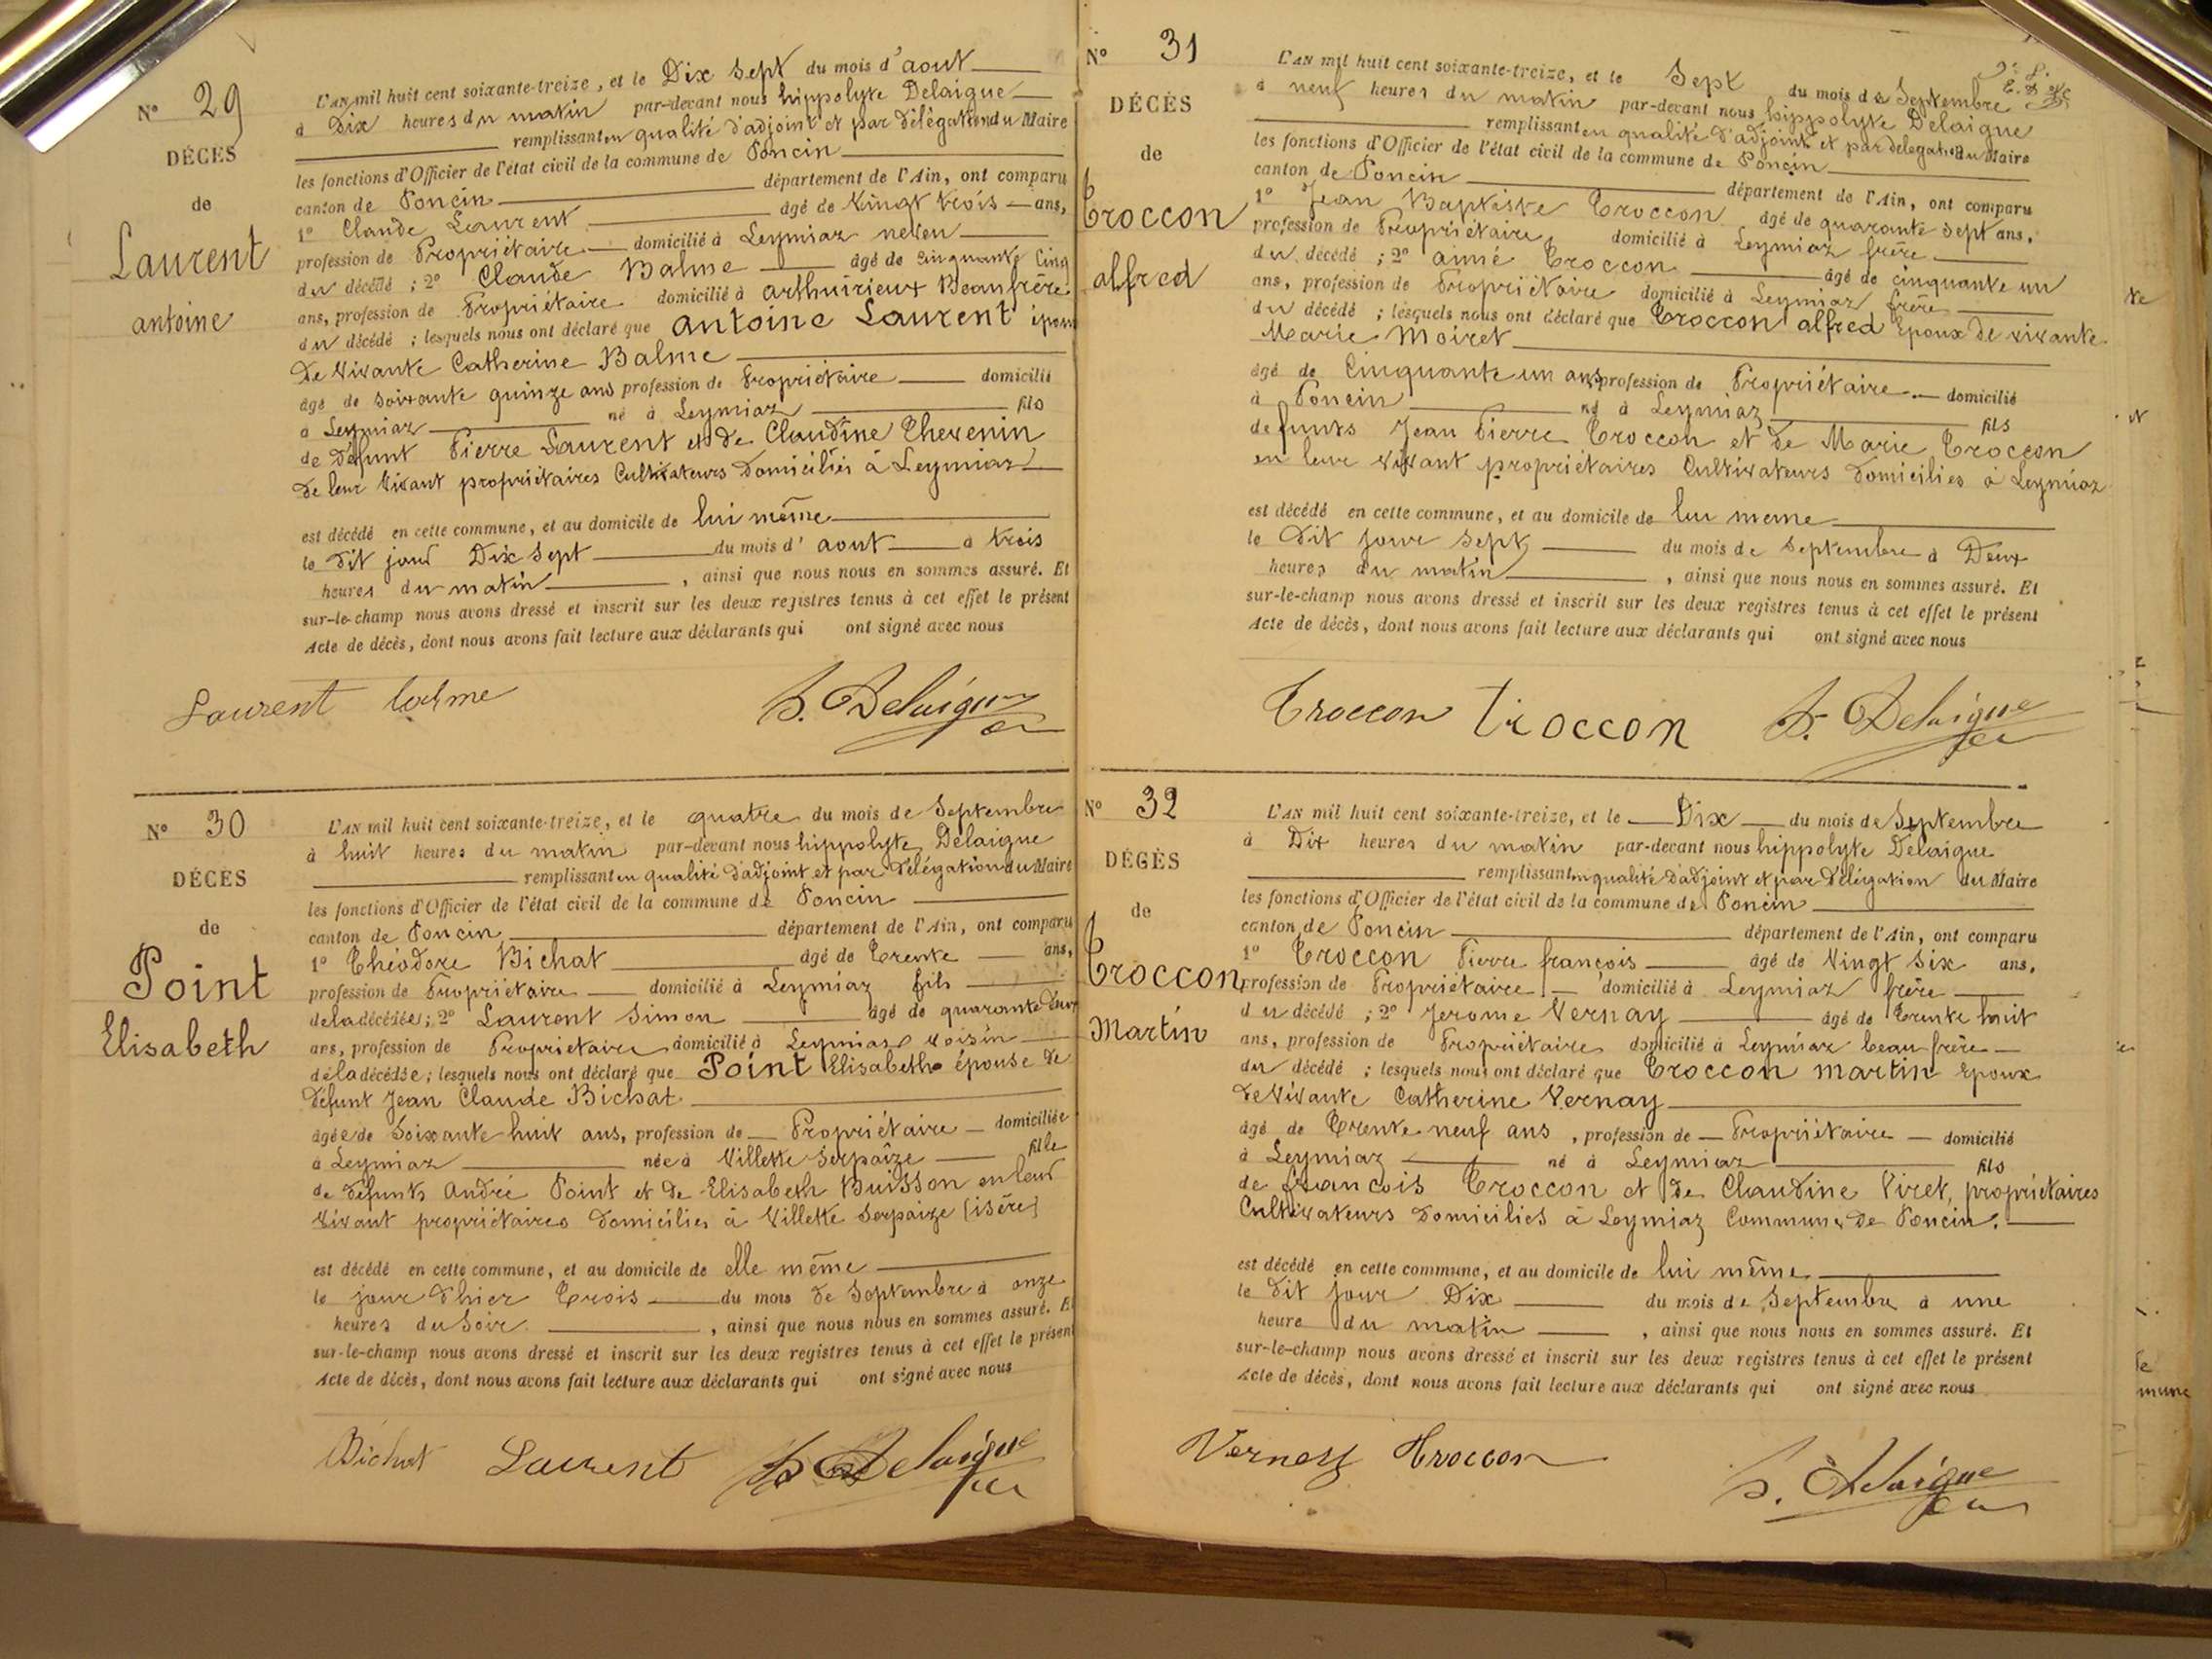 N° 29
DÉCÈS
de
Laurent
antoine
L'AN mil huit cent soixante-treize, et le Dix Sept du mois d'aout
à Dix heures du matin par-devant nous hippolyte Delaigue
remplissant en qualité d'adjoint et par délégation du Maire
les fonctions d'Officier de l'état civil de la commune de Poncin
canton de Poncin département de l'Ain, ont comparu
1° Claude Laurent âgé de Vingt trois ans,
profession de Propriétaire domicilié à Leymiaz neveu
du décédé ; 2° Claude Balme âgé de cinquante Cinq
ans, profession de Propriétaire domicilié à arthuirieux Beaufrère
du décédé ; lesquels nous ont déclaré que antoine Laurent époux
De Vivante Catherine Balme
âgé de Soixante quinze ans profession de Propriétaire domicilié
à Leymiaz né à Leymiaz fils
de défunt Pierre Laurent et de Claudine Thevenin
De leur Vivant propriétaires Cultivateurs Domiciliés à Leymiaz
est décédé en cette commune, et au domicile de lui même
le dit jour Dix Sept du mois d'aout à trois
heures du matin, ainsi que nous nous en sommes assuré. Et
sur-le-champ nous avons dressé et inscrit sur les deux registres tenus à cet effet le présent
Acte de décès, dont nous avons fait lecture aux déclarants qui ont signé avec nous
Laurent balme h. Delaigue
N° 30
DÉCÈS
de
Point
Elisabeth
L'AN mil huit cent soixante-treize, et le quatre du mois de Septembre
à huit heures du matin par-devant nous hippolyte Delaigue
remplissant en qualité d'adjoint et par Délégation du Maire
les fonctions d'Officier de l'état civil de la commune de Poncin
canton de Poncin département de l'Ain, ont comparu
1° Théodore Bichat âgé de Trente ans,
profession de Propriétaire domicilié à Leymiaz fils
de la décédée ; 2° Laurent Simon âgé de quarante deux
ans, profession de Propriétaire domicilié à Leymiaz voisin
de la décédée ; lesquels nous ont déclaré que Point Elisabeth épouse de
défunt Jean Claude Bichat
âgée de Soixante huit ans, profession de Propriétaire domiciliée
à Leymiaz née à Villette Serpaize fille
de défunts André Point et de Elisabeth Buisson en leur
Vivant propriétaires Domiciliés à Villette Serpaize (isère)
est décédé en cette commune, et au domicile de elle même
le jour d'hier Trois du mois de Septembre à onze
heures du Soir, ainsi que nous nous en sommes assuré. Et
sur-le-champ nous avons dressé et inscrit sur les deux registres tenus à cet effet le présent
Acte de décès, dont nous avons fait lecture aux déclarants qui ont signé avec nous
Bichat Laurent h Delaigue
N° 31
DÉCÈS
de
Troccon
alfred
L'AN mil huit cent soixante-treize, et le Sept du mois de Septembre
à neuf heures du matin par-devant nous hippolyte Delaigue
remplissant en qualité d'adjoint et par délégation du Maire
les fonctions d'Officier de l'état civil de la commune de Poncin
canton de Poncin département de l'Ain, ont comparu
1° Jean Baptiste Troccon âgé de quarante sept ans,
profession de Propriétaire, domicilié à Leymiaz frère
du décédé ; 2° aimé Troccon âgé de cinquante un
ans, profession de Propriétaire domicilié à Leymiaz frère
du décédé ; lesquels nous ont déclaré que Troccon alfred Epoux de vivante
Marie Moiret
âgé de Cinquante un ans, profession de Propriétaire domicilié
à Poncin né à Leymiaz fils
défunts Jean Pierre Troccon et de Marie Troccon
en leur vivant propriétaires Cultivateurs domiciliés à Leymiaz
est décédé en cette commune, et au domicile de lui meme
le Dit jour Sept du mois de Septembre à Deux
heures du matin, ainsi que nous nous en sommes assuré. Et
sur-le-champ nous avons dressé et inscrit sur les deux registres tenus à cet effet le présent
Acte de décès, dont nous avons fait lecture aux déclarants qui ont signé avec nous
Troccon troccon h. Delaigue
N° 32
DÉCÈS
de
Troccon
Martin
L'AN mil huit cent soixante-treize, et le Dix du mois de Septembre
à Dix heures du matin par-devant nous hippolyte Delaigue
remplissant en qualité d'adjoint et par Délégation du Maire
les fonctions d'Officier de l'état civil de la commune de Poncin
canton de Poncin département de l'Ain, ont comparu
1° Troccon Pierre françois âgé de Vingt Six ans,
profession de Propriétaire domicilié à Leymiaz frère
du décédé ; 2° Jerome Vernay âgé de Trente huit
ans, profession de Propriétaire domicilié à Leymiaz beau frère
du décédé ; lesquels nous ont déclaré que Troccon martin Epoux
De Vivante Catherine Vernay
âgé de Trente neuf ans, profession de Propriétaire domicilié
à Leymiaz né à Leymiaz fils
de francois Troccon et de Claudine Viret, propriétaires
Cultivateurs Domiciliés à Leymiaz Commune de Poncin.
est décédé en cette commune, et au domicile de lui même
le Dit jour Dix du mois de Septembre à une
heure du matin, ainsi que nous nous en sommes assuré. Et
sur-le-champ nous avons dressé et inscrit sur les deux registres tenus à cet effet le présent
Acte de décès, dont nous avons fait lecture aux déclarants qui ont signé avec nous
Vernay Troccon h. Delaigue